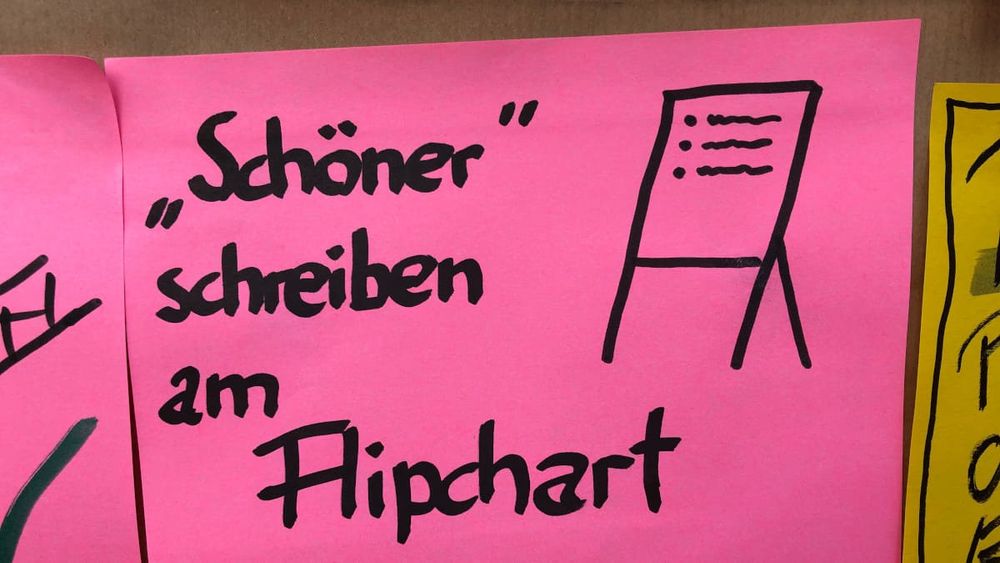 „Schöner”
schreiben
am
Flipchart